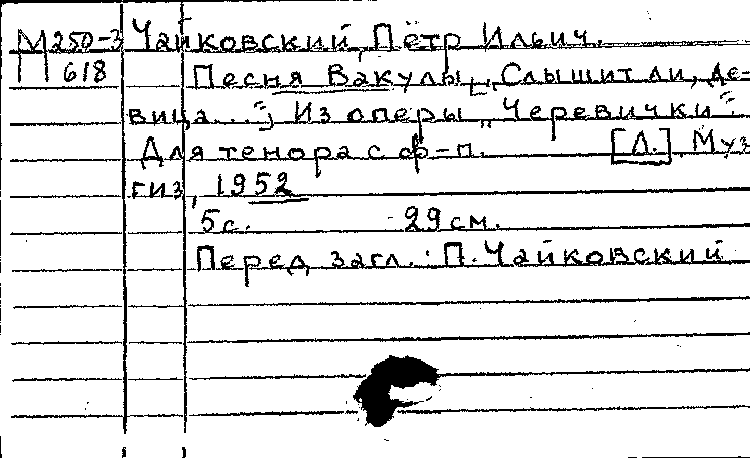 М250-3 Чайковский, Пётр Ильич.
618 Песня Вакулы „Слышит ли, де-
вица...“; Из оперы „Черевички“.
Для тенора с ф-п. [Л.] Муз
гиз, 1952
5с. 29см.
Перед загл.: П. Чайковский